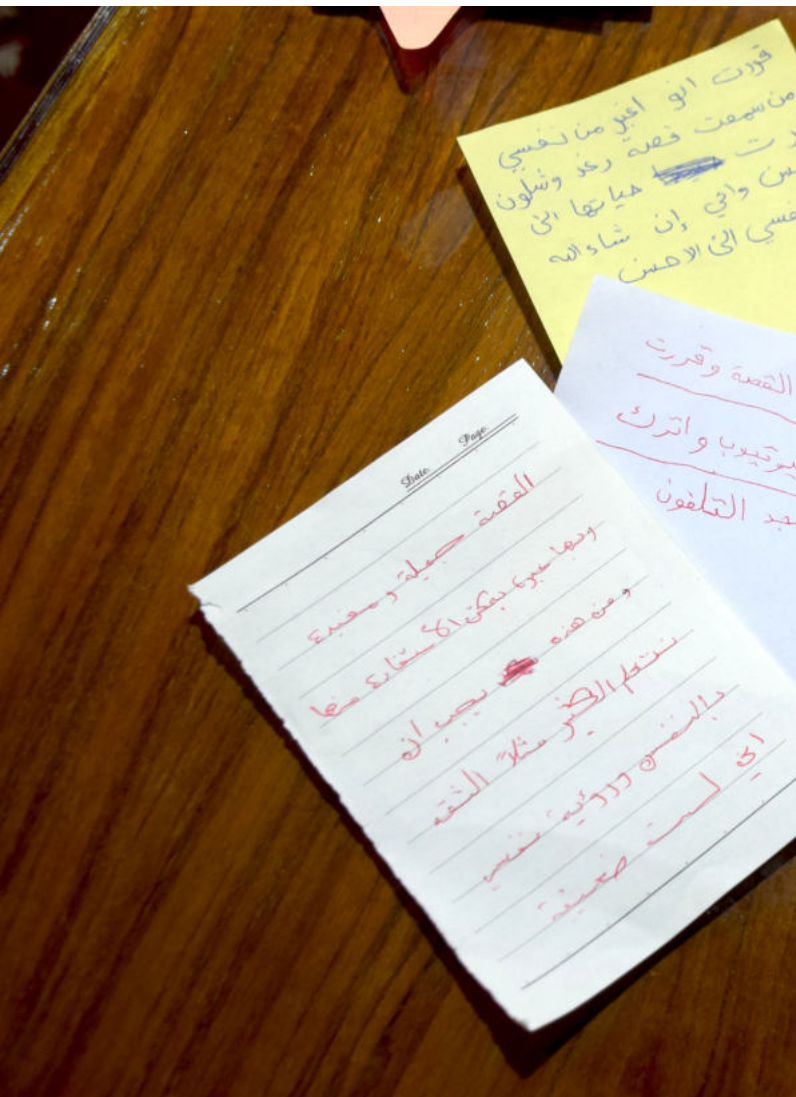 قررت انو اغير من نفسي
من سمعت قصه رغد وشلون
ت حياتها الى
واني إن شاء الله
نفسي الى الاحسن
القصة وقررت
واترك
التلفون
Date Page
القصة جميلة ومفيدة
وبها عبرة يمكن الأستفادة منها
ومن هذه يجب ان
نتعلم الكثير مثلاً الثقه
بالنفس ورؤية نفسي
اني لست ضعيفة